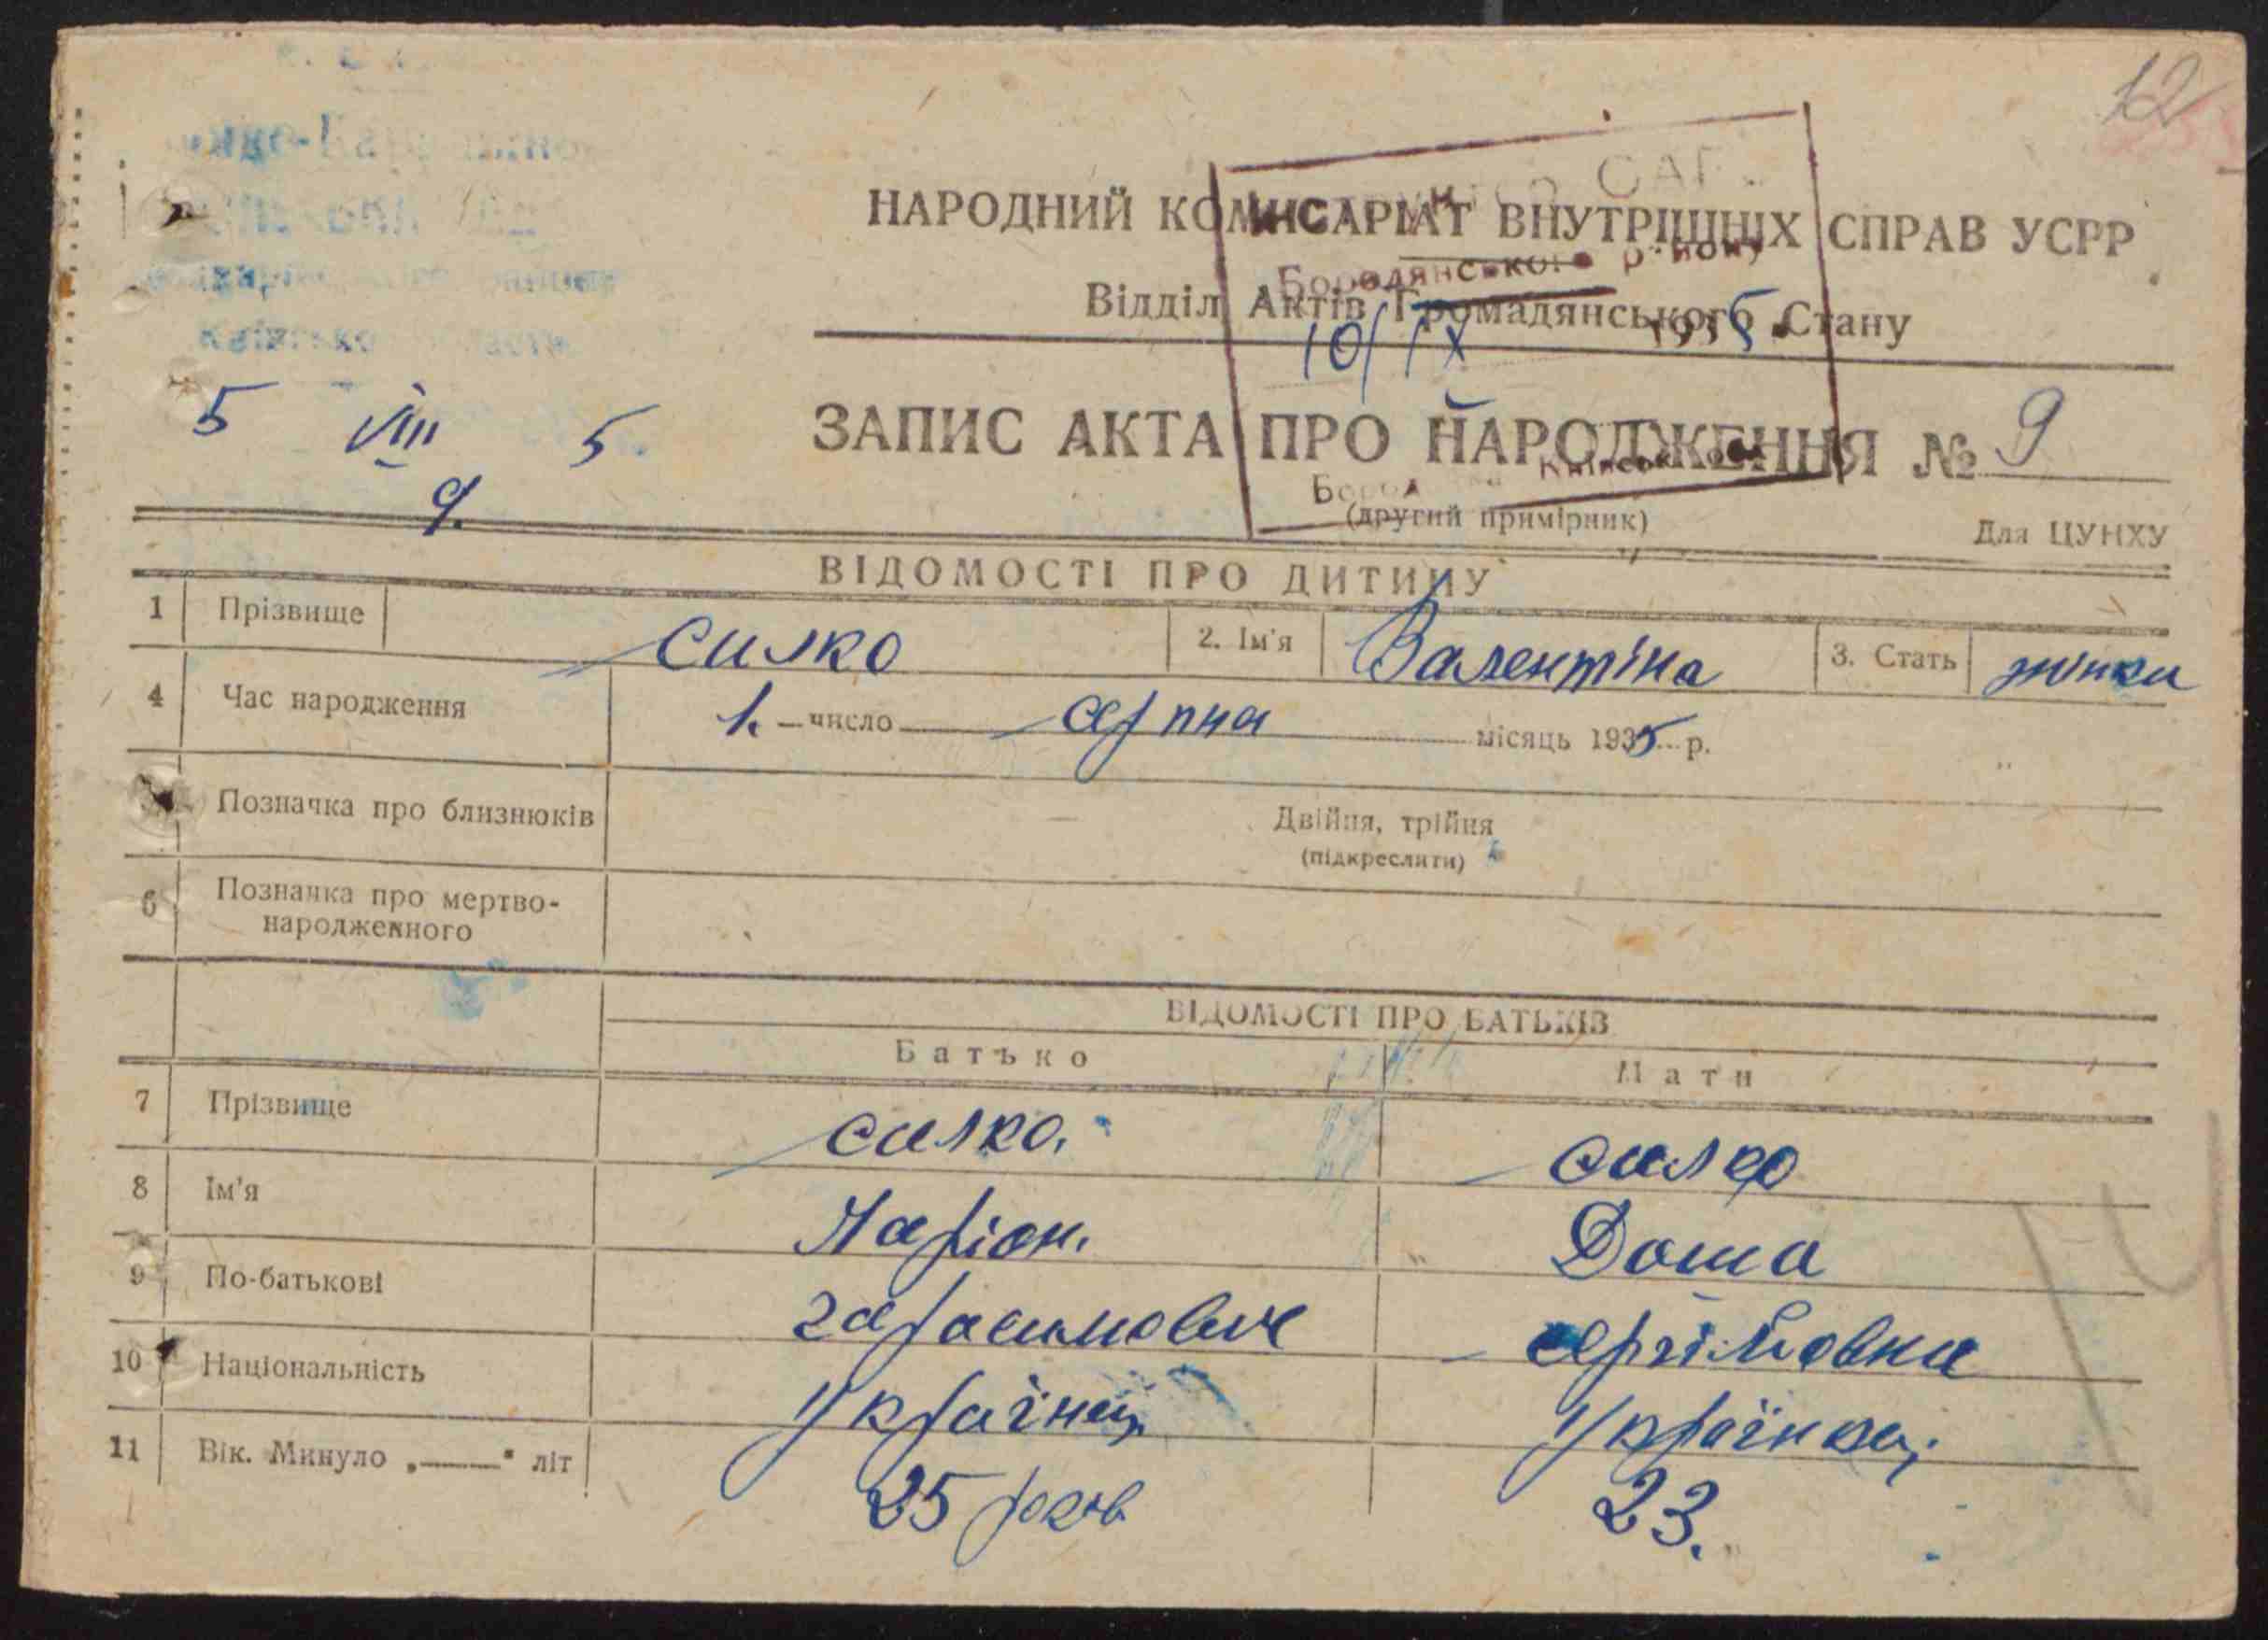 12
НАРОДНИЙ КОМІСАРІАТ ВНУТРІШНІХ СПРАВ УСРР
Бородянського району
Відділ Актів Громадянського Стану
10/IX 1935
5 VIII 5
9.
ЗАПИС АКТА ПРО НАРОДЖЕННЯ № 9
(другий примірник)
Для ЦУНХУ
ВІДОМОСТІ ПРО ДИТИНУ
1 Прізвище Силко 2. Ім'я Валентіна 3. Стать жінки
4 Час народження 1. число серпня місяць 1935 р.
Позначка про близнюків Двійня, трійня
(підкреслити)
6 Позначка про мертво-
народженного
ВІДОМОСТІ ПРО БАТЬКІВ
Батько Мати
7 Прізвище силко. силко
8 Ім'я Ларіон. Доша
9 По-батькові гарасимович сергійовна
10 Національність Українец Українка
11 Вік. Минуло „——" літ 25 років 23.